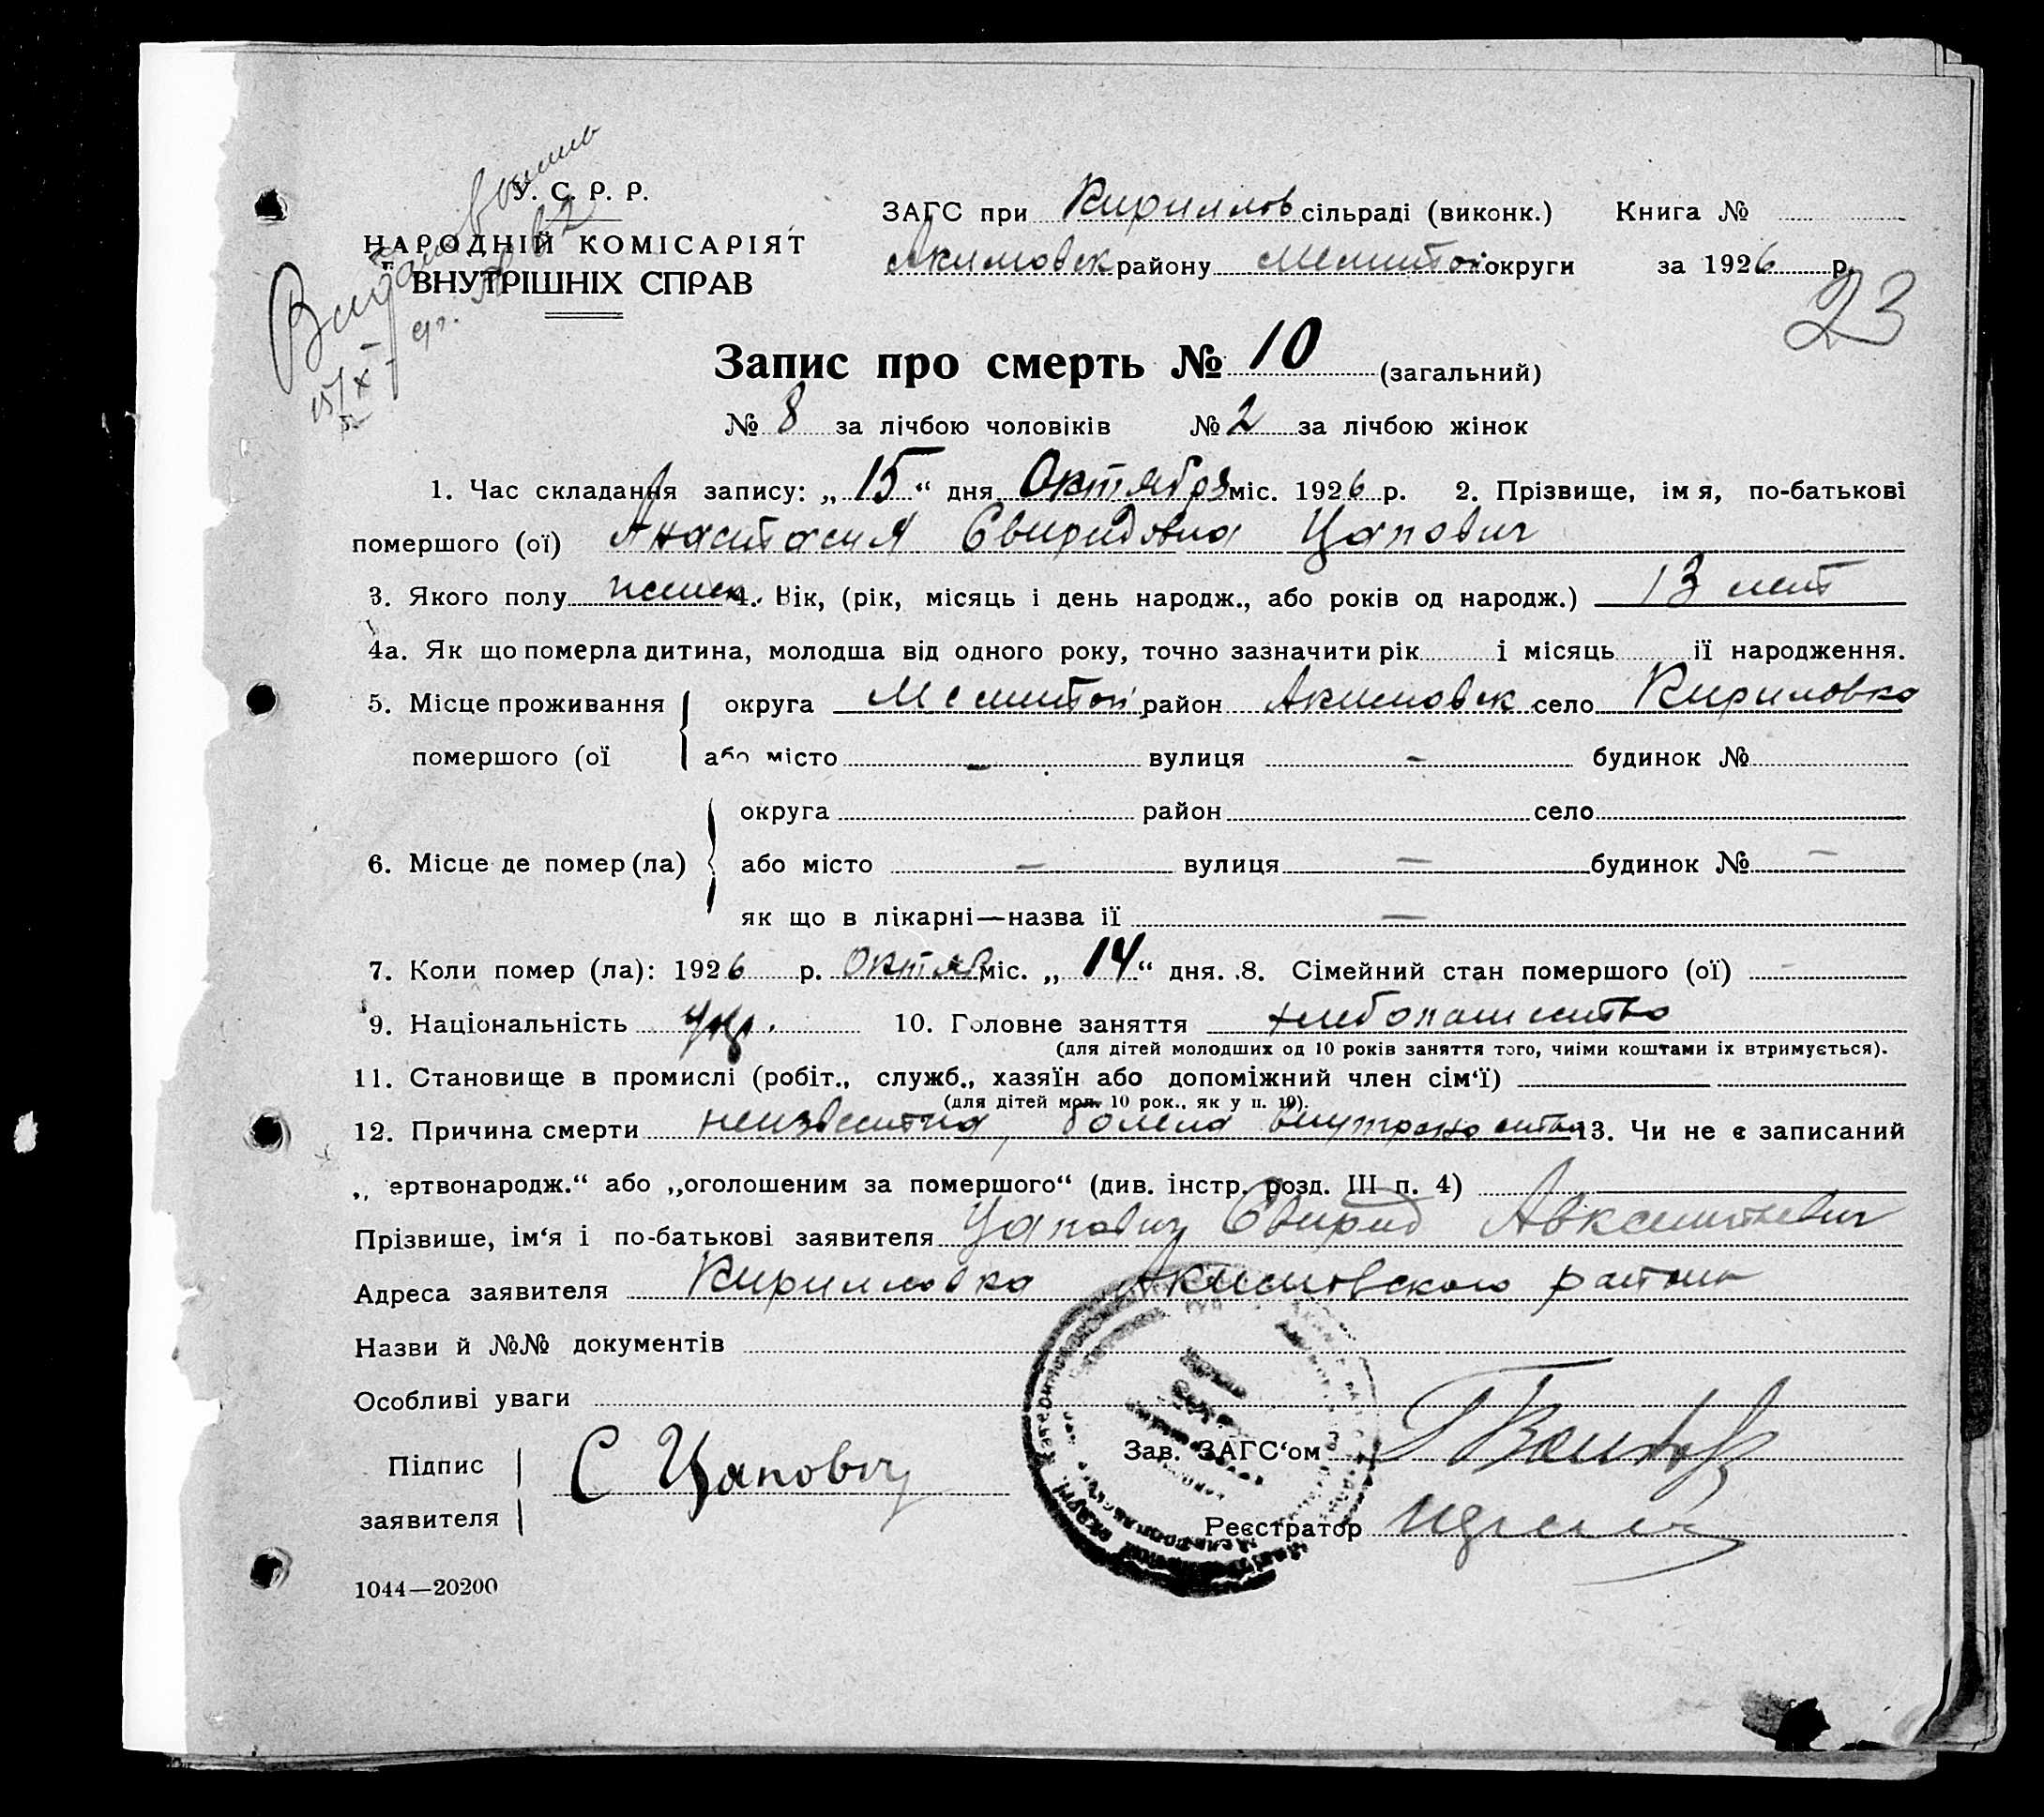 У. С. Р. Р.
НАРОДНІЙ КОМІСАРІЯТ
ВНУТРІШНІХ СПРАВ
ЗАГС при Кириллов сільраді (виконк.) Книга №
Акимовск району Мелитоп округи за 1926 р.
23
Запис про смерть № 10 (загальний)
№ 8 за лічбою чоловіків № 2 за лічбою жінок
1. Час складання запису: „15“ дня Октября міс. 1926 р. 2. Прізвище, імя, по-батькові
помершого (ої) Анастасия Свиридовна Цапович
3. Якого полу женск. 4. Вік, (рік, місяць і день народж., або років од народж.) 13 лет
4а. Як що померла дитина, молодша від одного року, точно зазначити рік і місяць її народження.
5. Місце проживання округа Мелитоп район Акимовск село Кириловка
помершого (ої або місто – вулиця – будинок №
округа район село
6. Місце де помер (ла) або місто – вулиця – будинок № –
як що в лікарні—назва її –
7. Коли помер (ла): 1926 р. Октяб міс. „14“ дня. 8. Сімейний стан помершого (ої) –
9. Національність Укр. 10. Головне заняття хлебопашество
(для дітей молодших од 10 років заняття того, чиіми коштами іх втримується).
11. Становище в промислі (робіт., служб., хазяїн або допоміжний член сім‘ї)
(для дітей мол. 10 рок., як у п. 10).
12. Причина смерти неизвестна, болела 13. Чи не є записаний
„ ертвонародж.“ або „оголошеним за помершого“ (див. інстр. розд. III п. 4)
Прізвише, ім‘я і по-батькові заявителя Цапович Свирид Авксентиевич
Адреса заявителя Кирилловка Акимовского района
Назви й №№ документів
Особливі уваги
Підпис
заявителя С Цапович
Зав. ЗАГС‘ом
Реєстратор
1044—20200